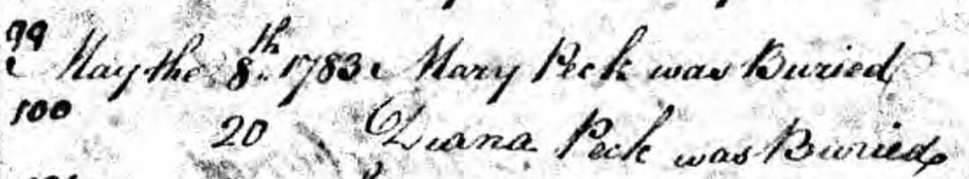 99
May the 8th 1783 Mary Peck was Buried
100
20 Diana Peck was Buried